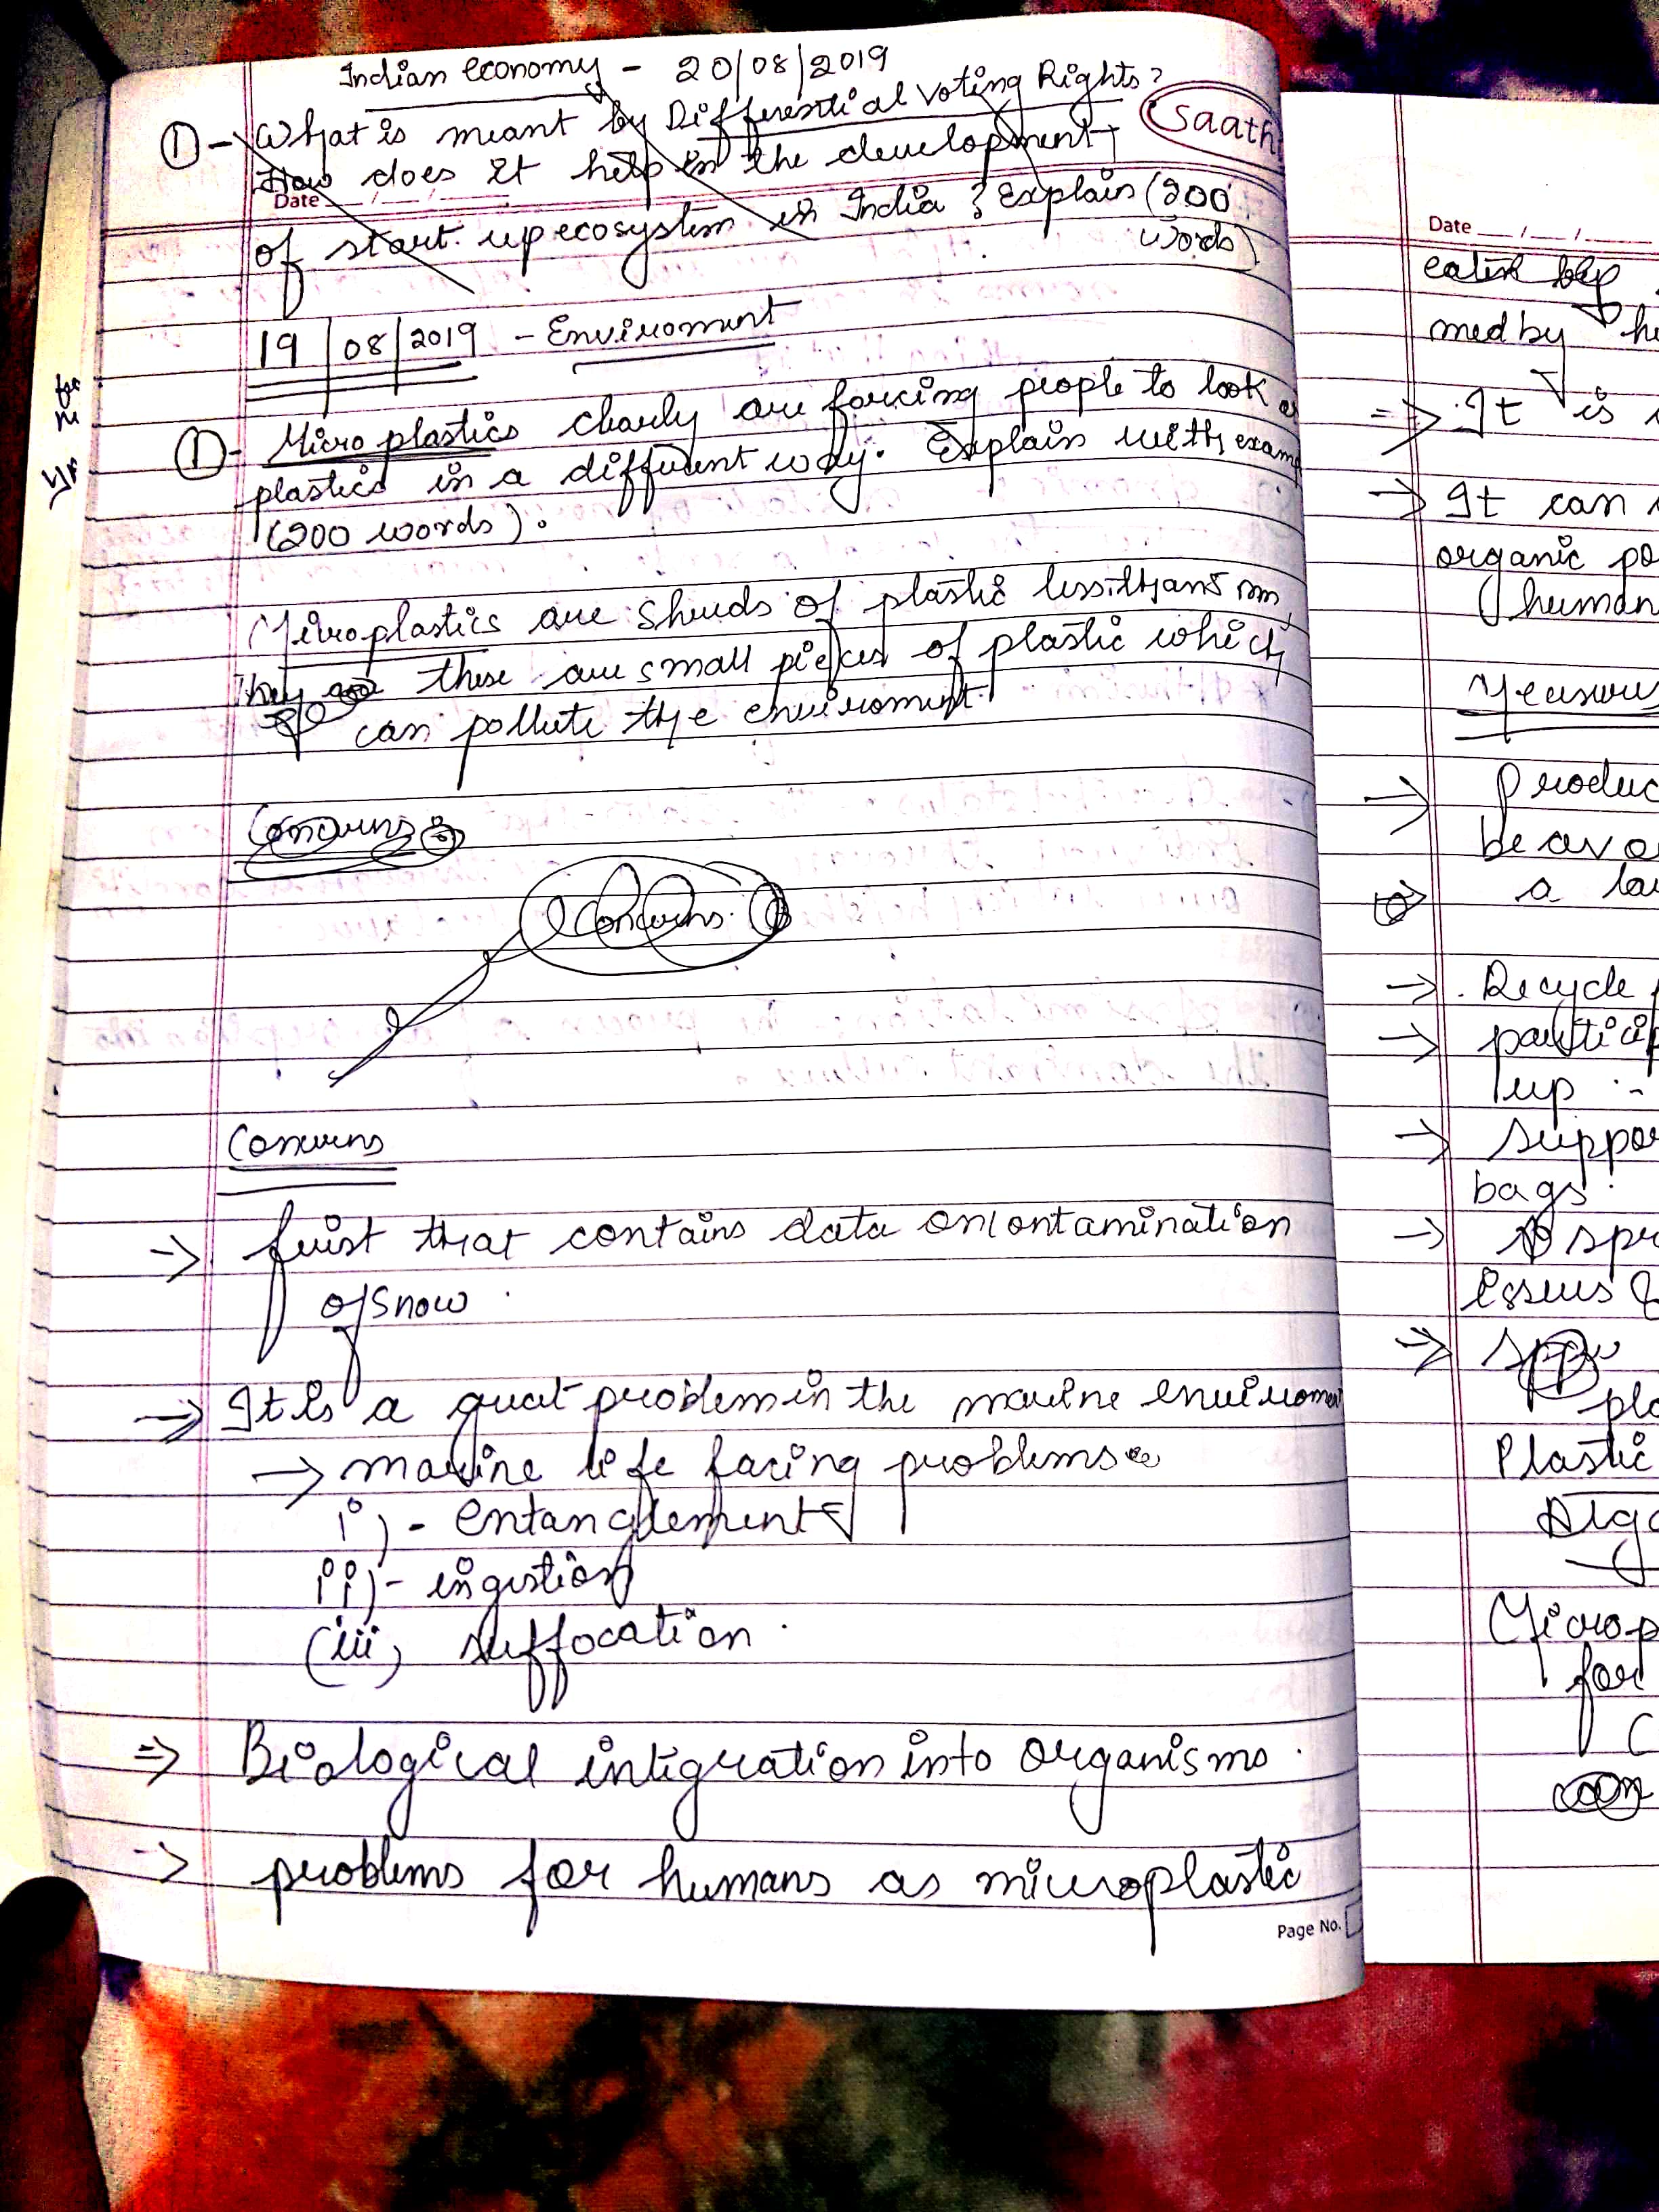 Indian economy - 20/08/2019
① - What is meant by Differential Voting Rights?
How does it help in the development
of start up ecosystem in India ? Explain (200
words)
saath
Date __/__/____
19/08/2019 - Enviroment
① - Microplastics clearly are forcing people to look
plastics in a different way. Explain with exam
(200 words).
Microplastics are Shreds of plastic less than 5 mm,
They are these are small pieces of plastic which
can pollute the enviroment.
Concerns:
Concerns.
Concerns
→ first that contains data on contamination
of snow.
⇒ It is a great problem in the marine enviromen
→ marine life facing problems
i) - entanglement
ii) - ingestion
(iii) suffocation.
⇒ Biological integration into organisms.
→ problems for humans as microplastic
Page No.
Date __/__/____
eaten by
med by
⇒ It is
→ It can
organic po
(human
Measures
→ Produc
be avo
a la
→ Recycle
→ particip
up :-
→ suppor
bags.
→ spr
issues
→
pla
Plastic
Alga
Microp
for
(